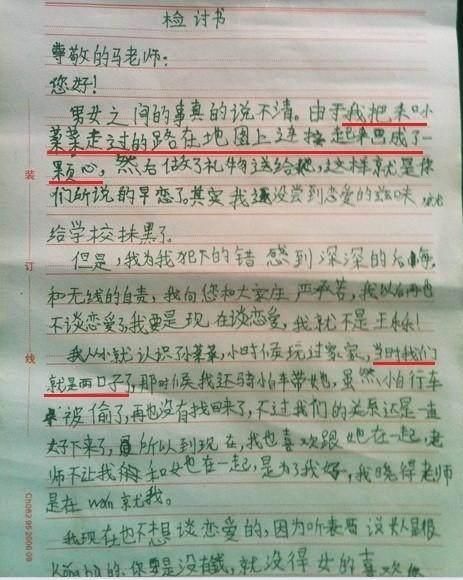 检讨书
尊敬的马老师:
您好!
男女之间的事真的说不清。由于我把朱口
菜菜走过的路在地图上连接起来画成了一
颗心,然后做了礼物送给她,这样就是你
们所说的早恋了。其实我还没尝到恋爱的滋味,就
给学校抹黑了。
但是,我为我犯下的错感到深深的后悔
和无线的自责,我向您和大家庄严承若,我以后再也
不谈恋爱了,我要是现在谈恋爱,我就不是王
我从小就认识孙菜菜,小时候玩过家家,当时我们
就是两口子了,那时候我还骑小白车带她,虽然小自行车
被偷了,再也没有找回来了,不过我们的关系还是一直
好下来了,所以到现在,我也喜欢跟她在一起,老
师不让我和她在一起,是为了我好,我晓得老师
是在wan救我。
我现在也不想谈恋爱的,因为听表哥说女人是很
的,你要是没有钱,就没得女的喜欢你
装
订
线